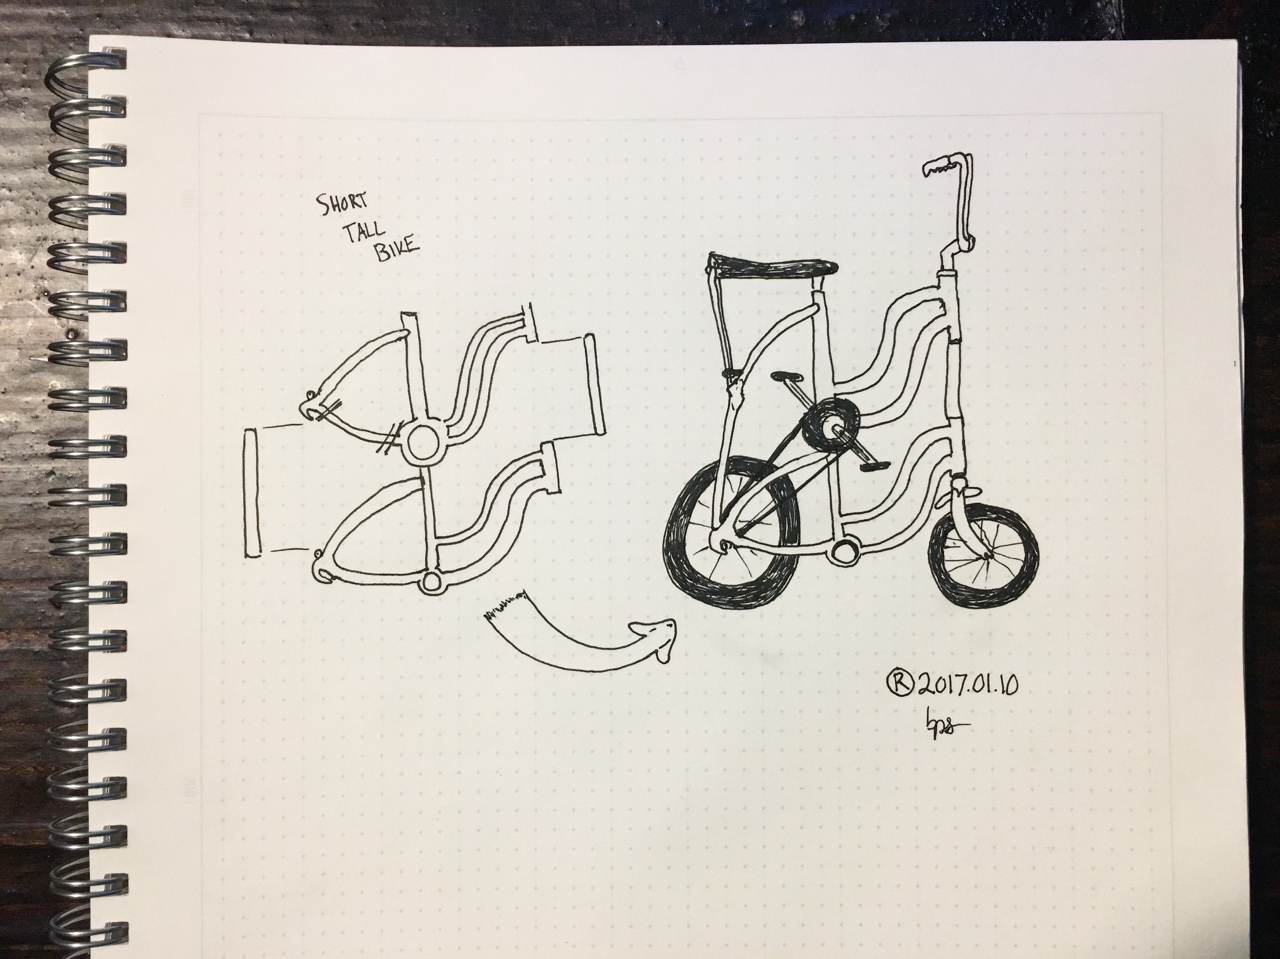 SHORT
TALL
BIKE
® 2017.01.10
bps